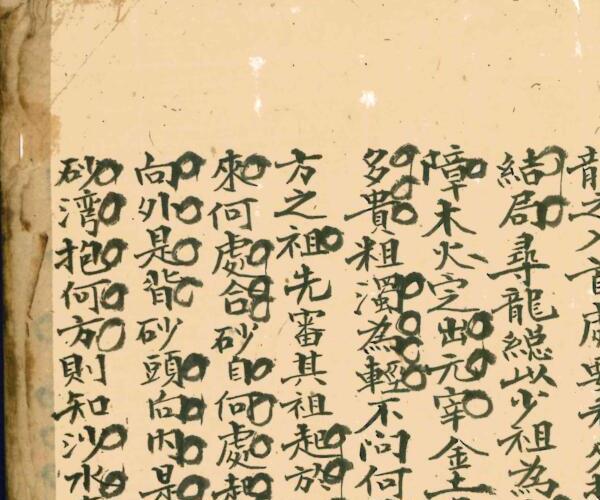 龍之入首
結局尋龍總以少祖為
障木火定出元宰金土
多貴粗濁為輕不問何
方之祖先審其祖起於
來何處合砂自何處起
向外是背砂頭向內是
砂湾抱何方則知沙水